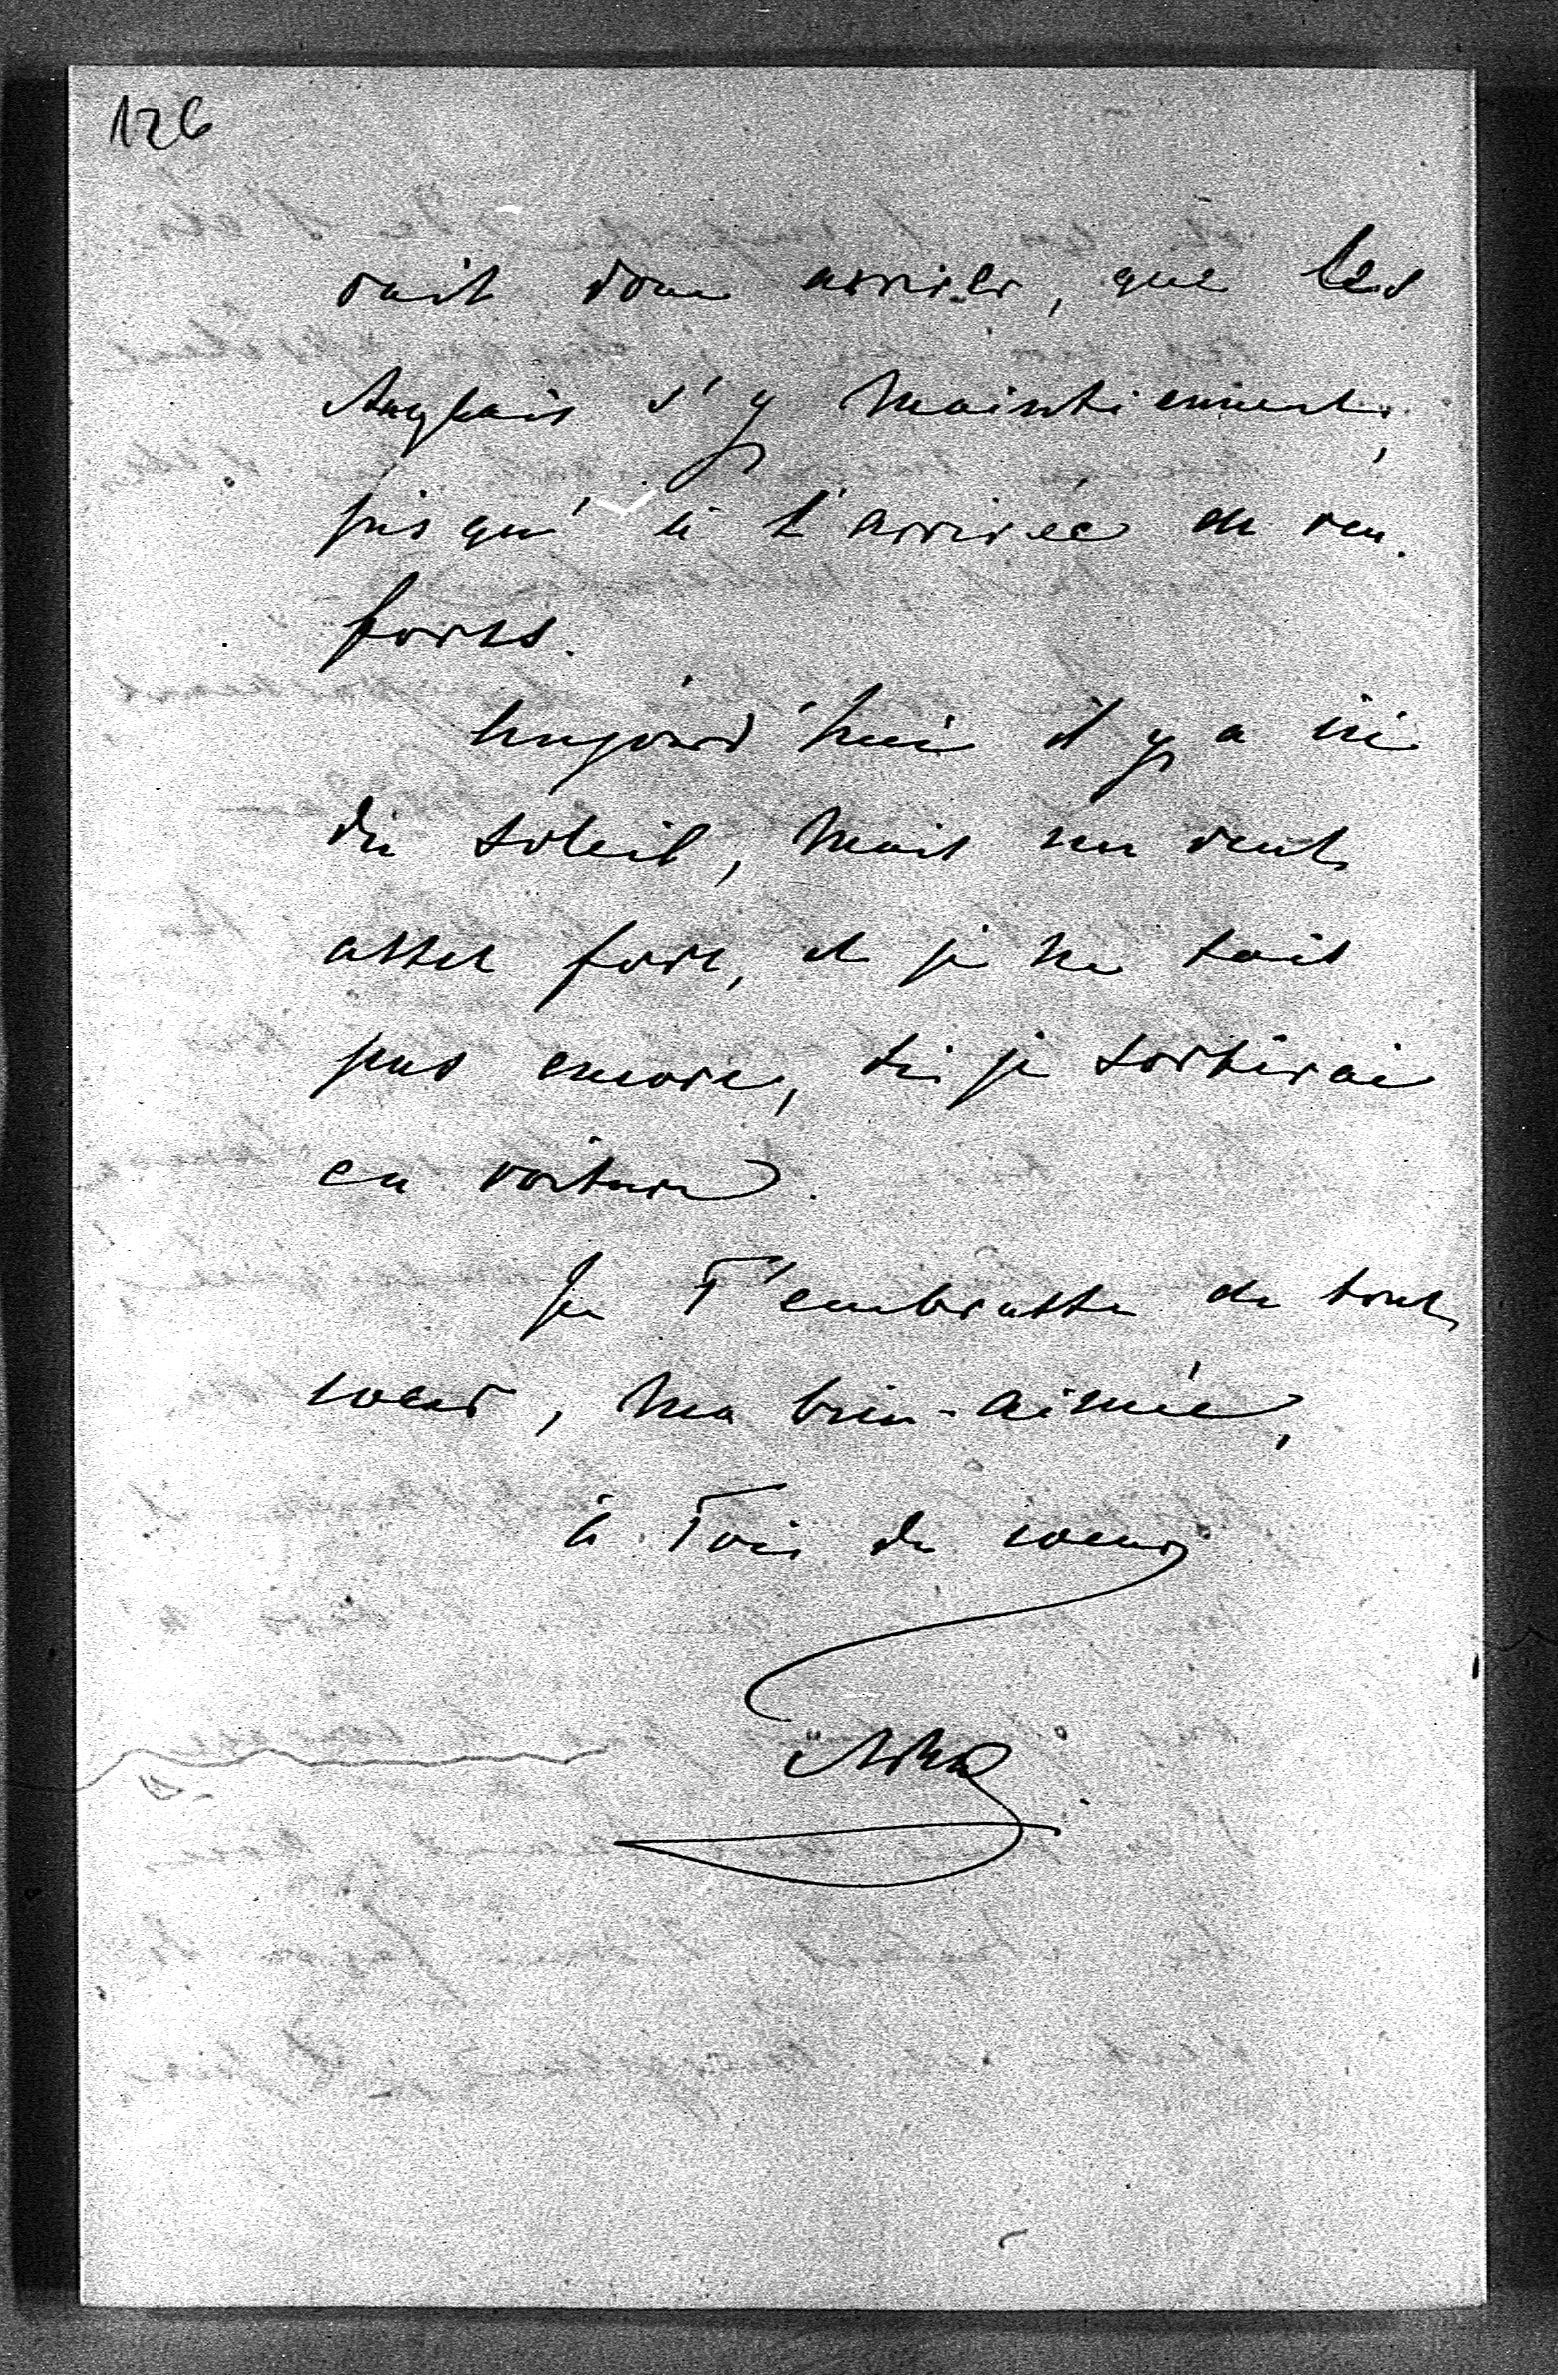 126
rait donc arriver, que les
Anglais s'y maintiennent,
jusqu'à l'arrivée de ren-
forts.
Aujourd'hui il y a ici
du soleil, mais un vent
assez fort, et je ne sais
pas encore, si je sortirai
en voiture.
Je T'embrasse de tout
coeur, ma bien-aimée,
à Toi de coeur